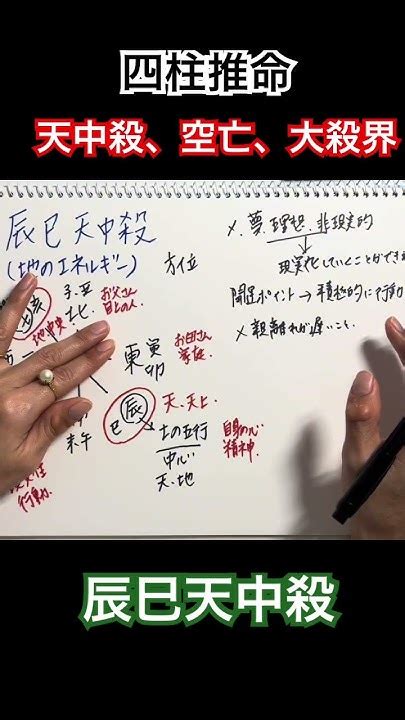 四柱推命
天中殺、空亡、大殺界
辰巳天中殺
(地のエネルギー)
方位
子丑
北
お父さん
目上の人
地中央
東
寅
卯
お母さん
家庭
辰
巳
天、天上
土の五行
中心
天・地
自身の心
精神
未午
行動
×夢、理想、非現実的
現実化していくことができ
開運ポイント→積極的に行動
×親離れが遅いこと。
辰巳天中殺